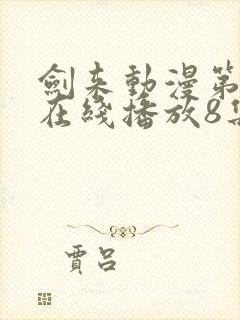 劍来動漫第
在綫播放8集
賈呂